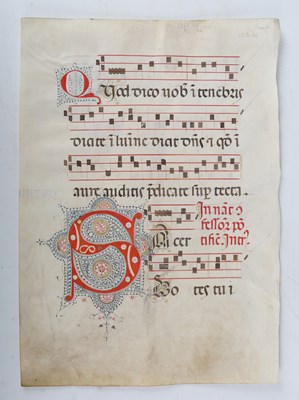 Qod dico vob i tenebris
dicite i lumine dicit dns: ⁊ qd i
aure auditis pdicate sup tecta
In nat ⁊
fessor po
tific. Intr.
Sacer
do tes tu i